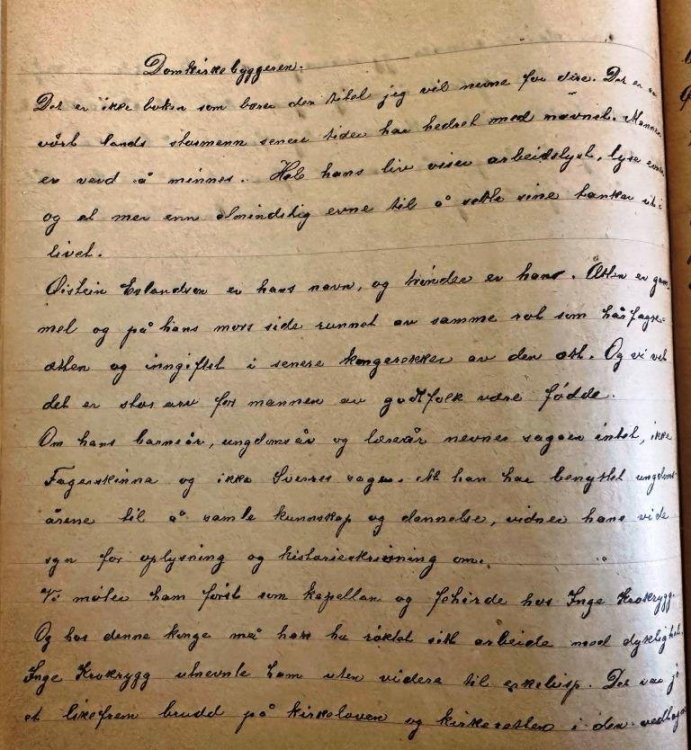 Domkirkebyggeren.
Det er ikke boken som bærer den titel jeg vil nevne for dere. Det er en
vårt lands stormenn senere tider har hedret med navnet. Mannen
er verd å minnes. Hele hans liv viser arbeidslyst, lyse evner
og et mer enn almindelig evne til å sette sine tanker ut i
livet.
Øistein Erlandsøn er hans navn, og trønder er han. Ætten er gam-
mel og på hans mors side runnet av samme rot som hårfagre-
ætten og inngiftet i senere kongerekker av den ætt. Og vi vet
det er stor arv for mannen av godtfolk være fødde.
Om hans barneår, ungdomsår og læreår nevner sagaen intet, ikke
Fagerskinna og ikke Sverres saga. At han har benyttet ungdoms-
årene til å samle kunnskap og dannelse, vidner hans vide
syn for oplysning og historieskrivning om.
Vi møter ham først som kapellan og fehirde hos Inge Krokrygg.
Og hos denne konge må han ha røktet sitt arbeide med dyktighet.
Inge Krokrygg utnevnte ham uten videre til erkebisp. Det var jo
et likefrem brudd på kirkeloven og kirkeretten i den